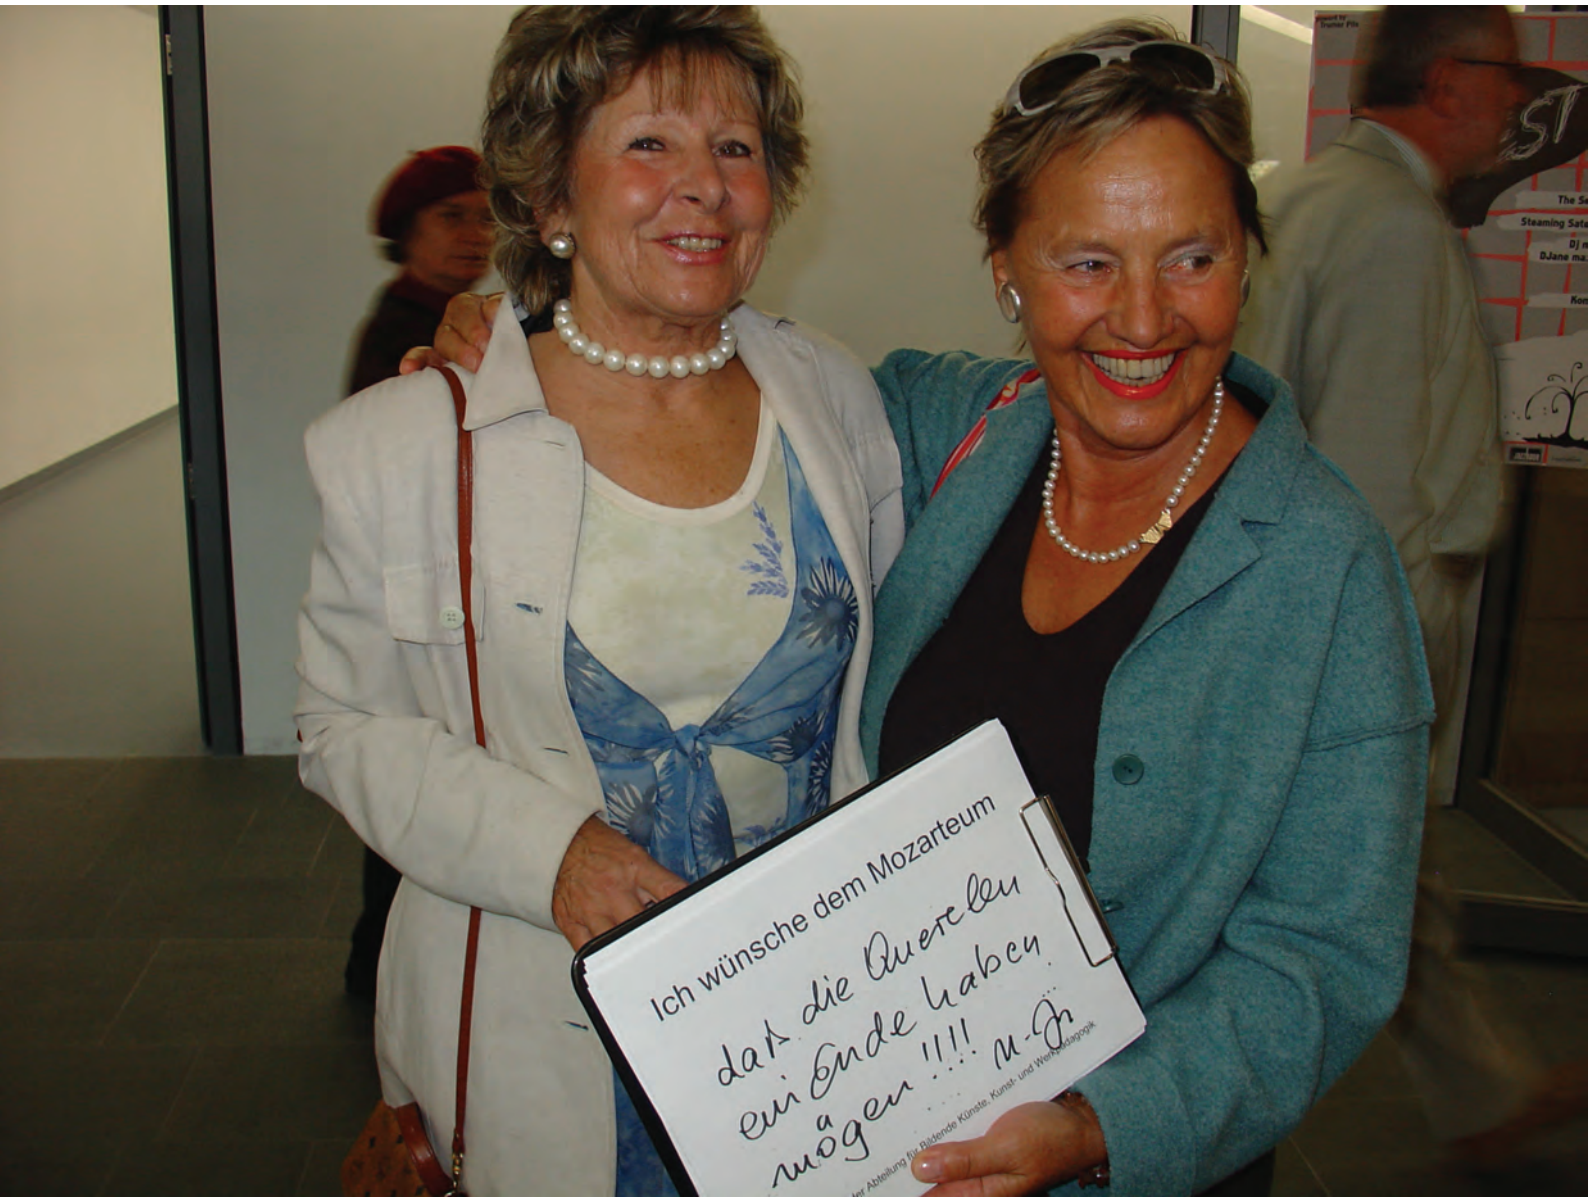 Ich wünsche dem Mozarteum
daß die Querelen
ein Ende haben
mögen !!!!
der Abteilung für Bildende Künste, Kunst- und Werkpädagogik
Trumer Pils
ST
The Se
Steaming Satu
Dj m
DJane ma.
Kon